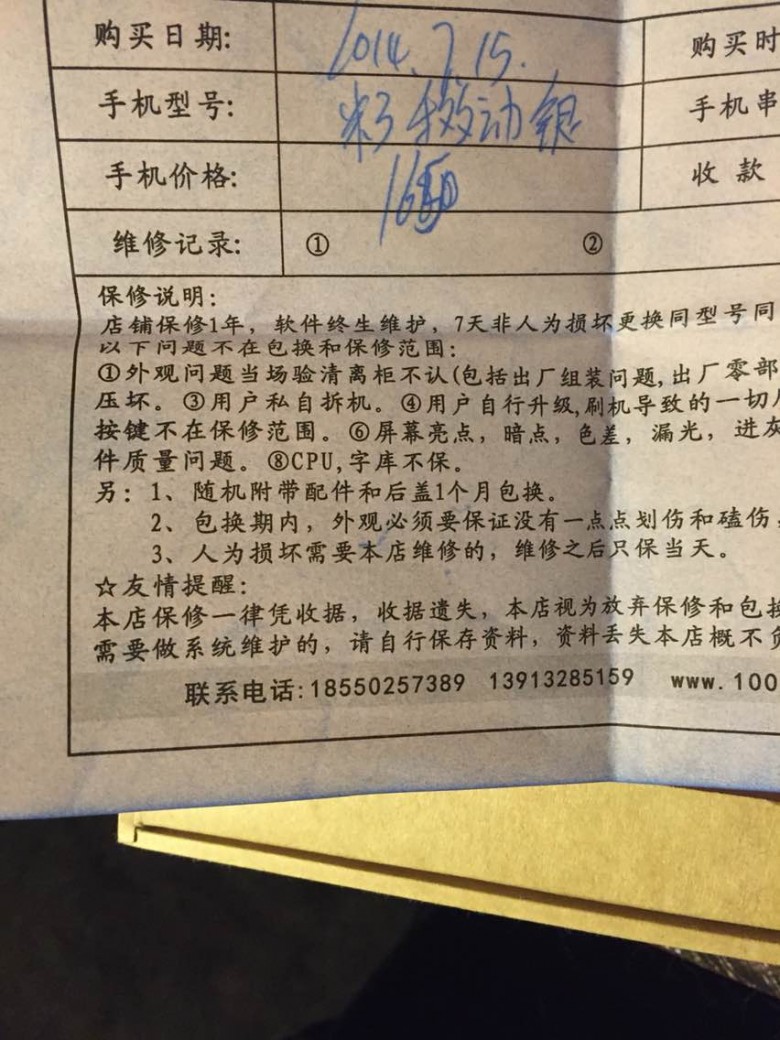 购买日期: 2014.7.15. 购买时
手机型号: 移动银 手机串
手机价格: 收款
维修记录: ① ②
保修说明:
店铺保修1年，软件终生维护，7天非人为损坏更换同型号同
以下问题不在包换和保修范围:
①外观问题当场验清离柜不认(包括出厂组装问题,出厂零部
压坏。③用户私自拆机。④用户自行升级,刷机导致的一切
按键不在保修范围。⑥屏幕亮点，暗点，色差，漏光，进灰
件质量问题。⑧CPU,字库不保。
另: 1、随机附带配件和后盖1个月包换。
2、包换期内，外观必须要保证没有一点点划伤和磕伤，
3、人为损坏需要本店维修的，维修之后只保当天。
☆友情提醒:
本店保修一律凭收据，收据遗失，本店视为放弃保修和包换
需要做系统维护的，请自行保存资料，资料丢失本店概不负
联系电话:18550257389 13913285159 www.100